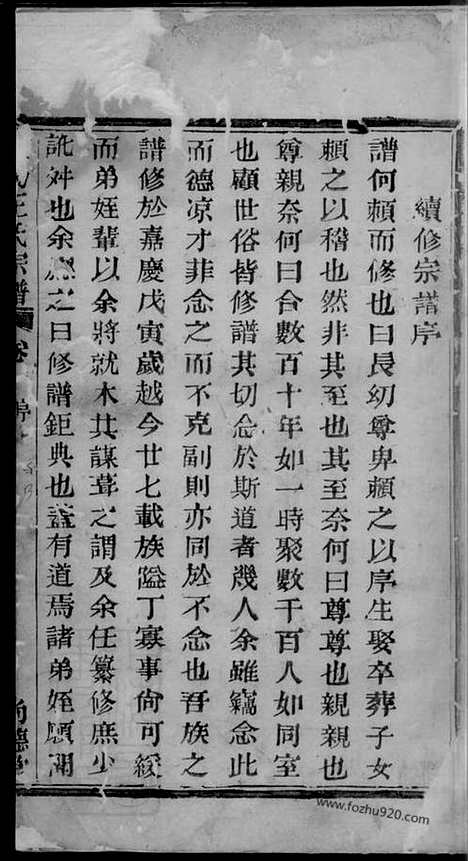 續修宗譜序
譜何賴而修也曰長幼尊卑賴之以序生娶卒葬子女
賴之以稽也然非其至也其至奈何曰尊尊也親親也
尊親奈何曰合數百十年如一時聚數千百人如同室
也顧世俗皆修譜其切念於斯道者幾人余雖竊念此
而德凉才菲念之而不克副則亦同於不念也吾族之
譜修於嘉慶戊寅歲越今廿七載族隘丁寡事尙可緩
而弟姪輩以余將就木共謀葺之謂及余任纂修庶少
訛舛也余應之曰修譜鉅典也蓋有道焉諸弟姪願聞
王氏宗譜 卷 序
www.fozhu920.com